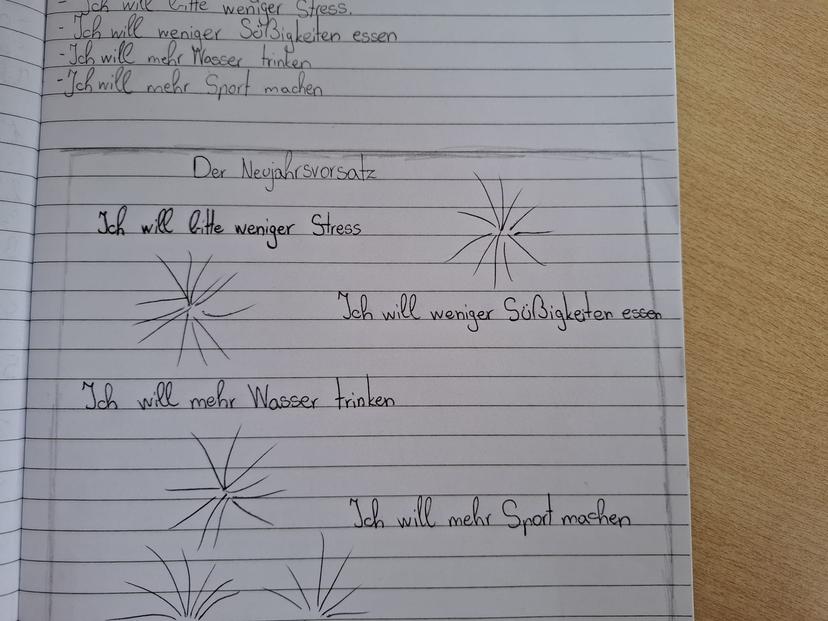 - Ich will bitte weniger Stress.
- Ich will weniger Süßigkeiten essen
- Ich will mehr Wasser trinken
- Ich will mehr Sport machen
Der Neujahrsvorsatz
Ich will bitte weniger Stress
Ich will weniger Süßigkeiten essen
Ich will mehr Wasser trinken
Ich will mehr Sport machen